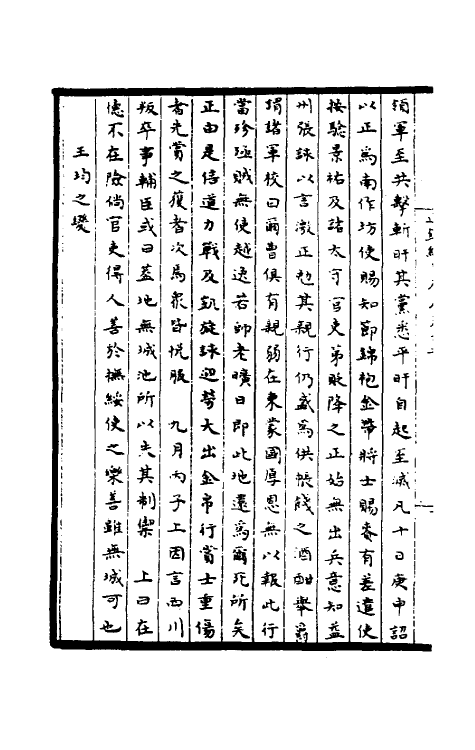 領軍至共擊斬旰其黨悉平旰自起至滅凡十日庚申詔
以正爲南作坊使賜知節錦袍金帶將士賜賚有差遣使
按驗景祐及諸太可官吏第敗降之正始無出兵意知益
州張詠以言激正勉其親行仍盛爲供帳餞之酒酣舉爵
謂諸軍校曰爾曹俱有親弱在東蒙國厚恩無以報此行
當殄殛賊無使越逸若師老曠日即此地還爲爾死所矣
正由是倍道力戰及凱旋詠迎勞大出金帛行賞士重傷
者先賞之獲者次焉衆皆悅服　九月丙子上因言西川
叛卒事輔臣或曰蓋地無城池所以失其制禦　上曰在
德不在險倘官吏得人善於撫綏使之樂善雖無城可也
王均之變